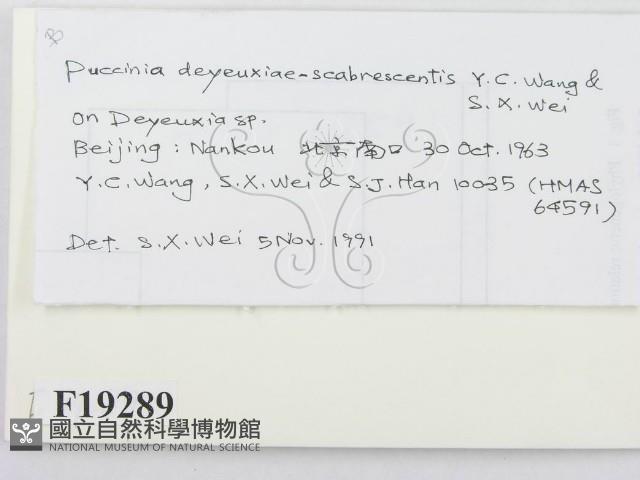 Puccinia deyeuxiae-scabrescentis Y.C. Wang &
S.X. Wei
on Deyeuxia sp.
Beijing : Nankou 北京南口 30 Oct. 1963
Y.C. Wang, S.X. Wei & S.J. Han 10035 (HMAS
64591)
Det. S.X. Wei 5 Nov. 1991
F19289
國立自然科學博物館
NATIONAL MUSEUM OF NATURAL SCIENCE